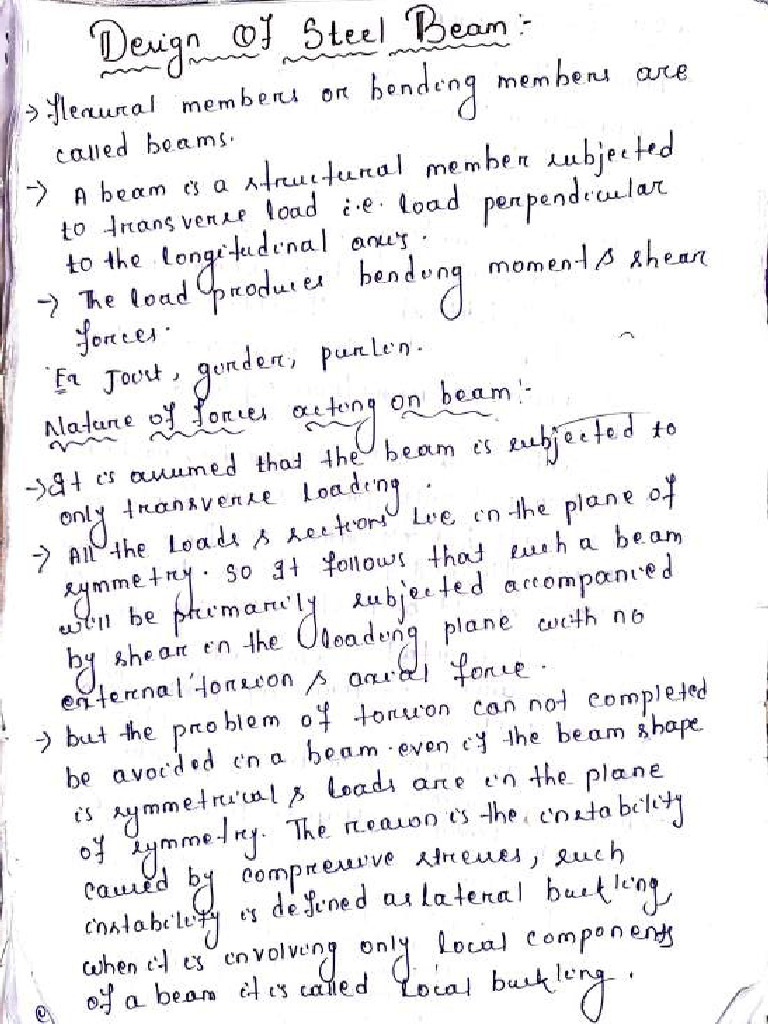 Design Of Steel Beam :-
→ flexural members or bending members are
called beams.
→ A beam is a structural member subjected
to transverse load i.e. load perpendicular
to the longitudinal axis.
→ The load produces bending moment & shear
forces.
Ex Joist, girder, purlin.
Nature of forces acting on beam :-
→ It is assumed that the beam is subjected to
only transverse loading.
→ All the loads & sections lie in the plane of
symmetry. So It follows that such a beam
will be primarily subjected accompanied
by shear in the loading plane with no
external torsion & axial force.
→ but the problem of torsion can not completed
be avoided in a beam even if the beam shape
is symmetrical & loads are in the plane
of symmetry. The reason is the instability
caused by compressive stresses, such
instability is defined as lateral buckling,
when it is involving only local components
of a beam it is called local buckling.